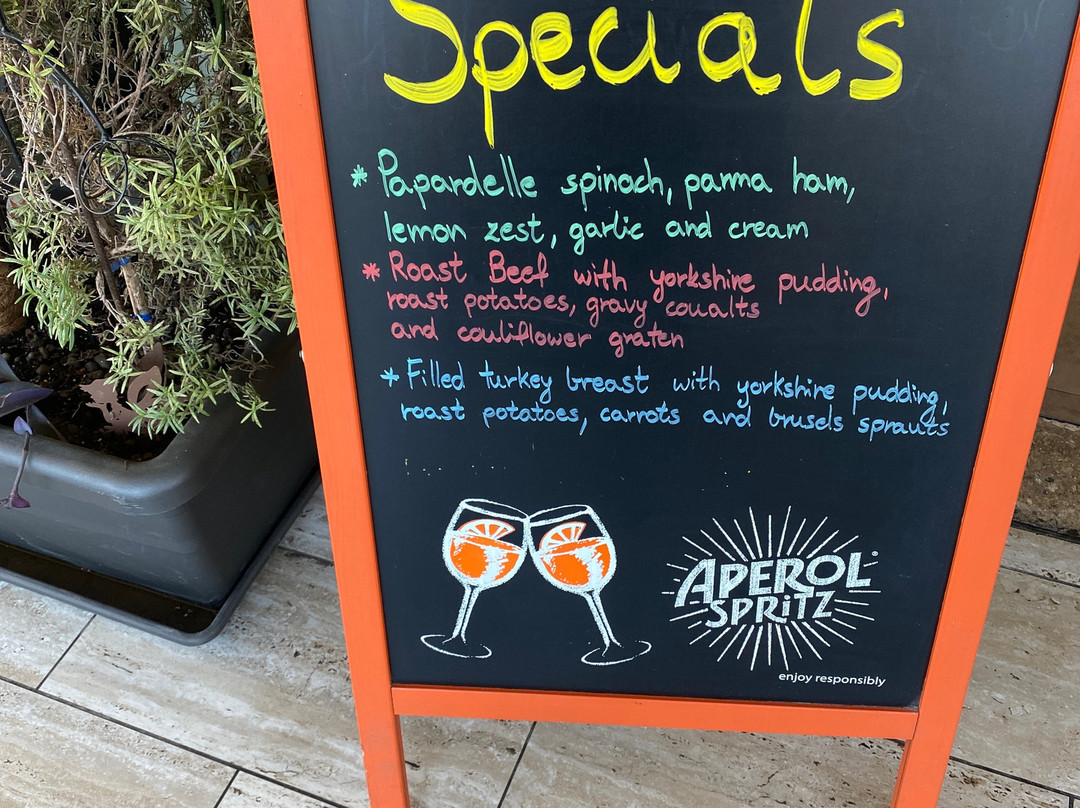 Specials
* Papardelle spinach, parma ham,
lemon zest, garlic and cream
* Roast Beef with yorkshire pudding,
roast potatoes, gravy coualts
and couliflower graten
* Filled turkey breast with yorkshire pudding,
roast potatoes, carrots and brusels sprauts
APEROL®
SPRiTZ
enjoy responsibly